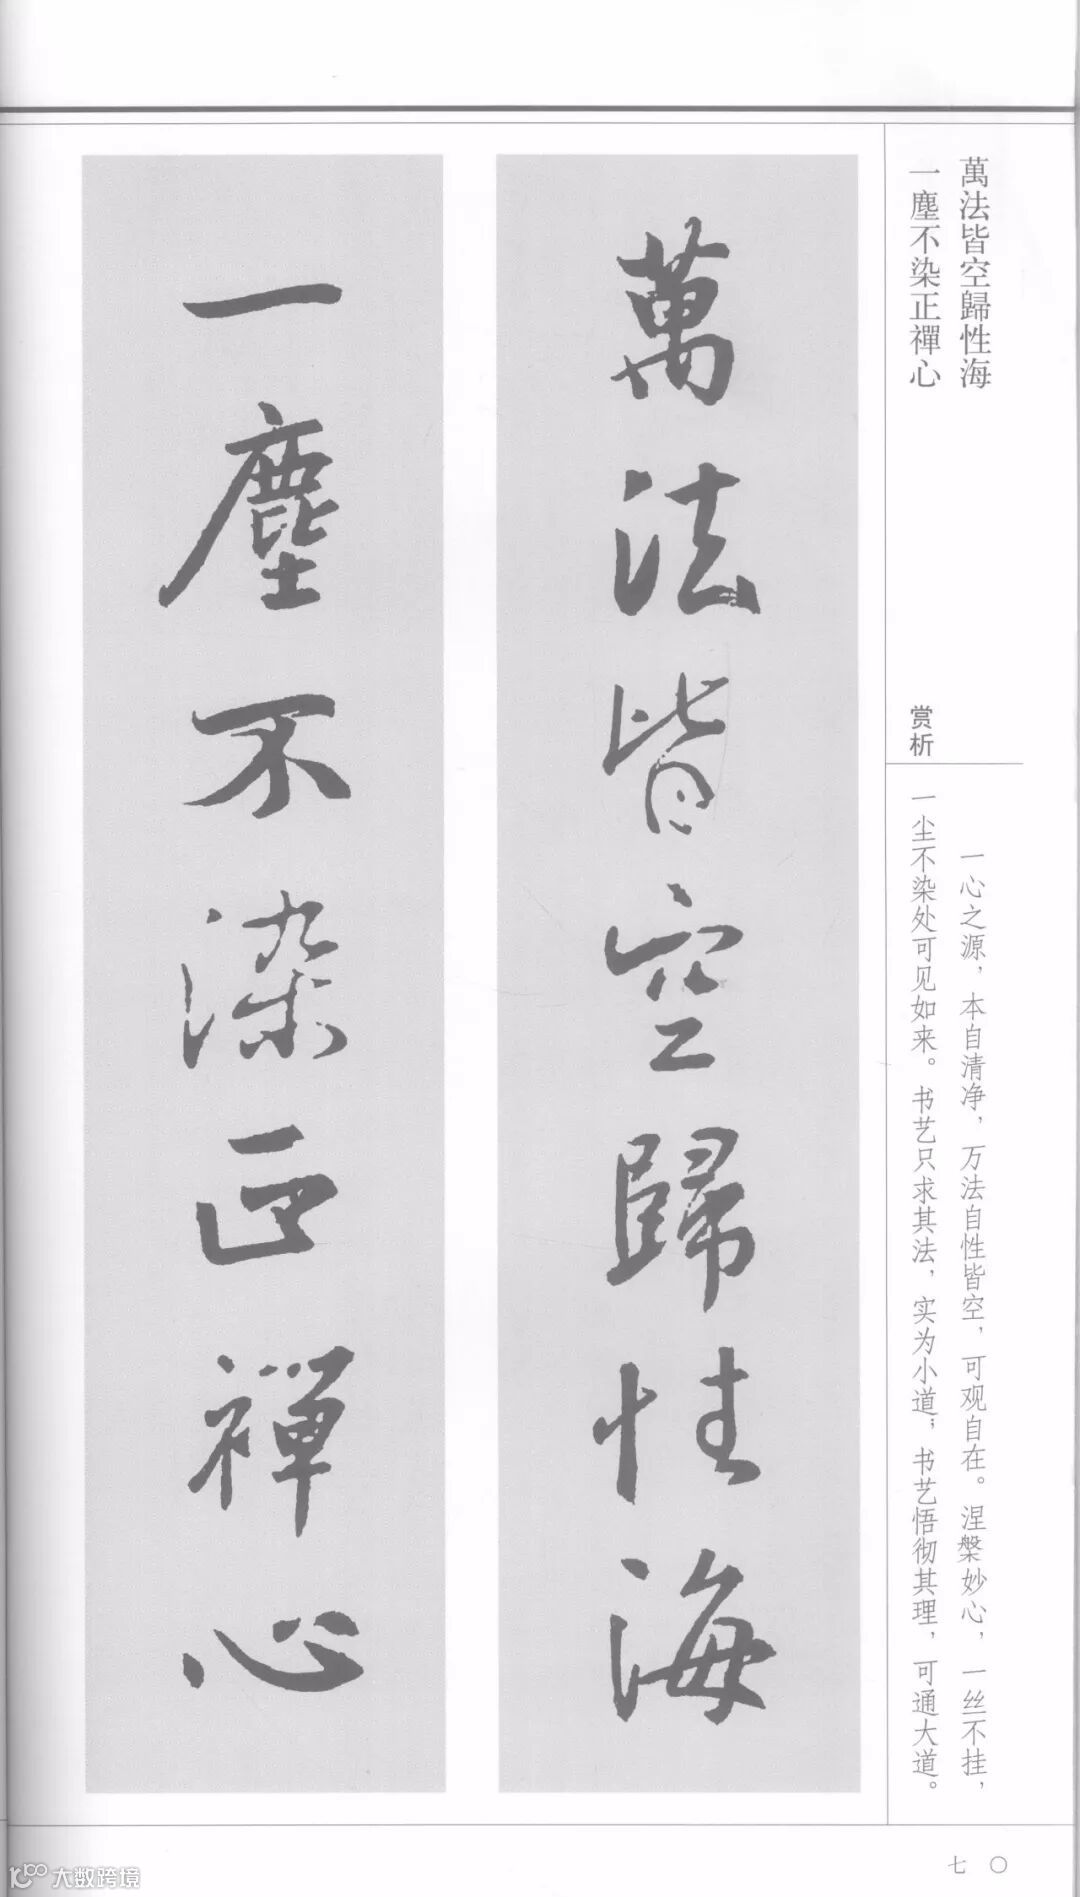 萬法皆空歸性海
一塵不染正禪心
赏析
一心之源，本自清净，万法自性皆空，可观自在。涅槃妙心，一丝不挂，
一尘不染处可见如来。书艺只求其法，实为小道；书艺悟彻其理，可通大道。
萬法皆空歸性海
一塵不染正禪心
七〇
大数跨境